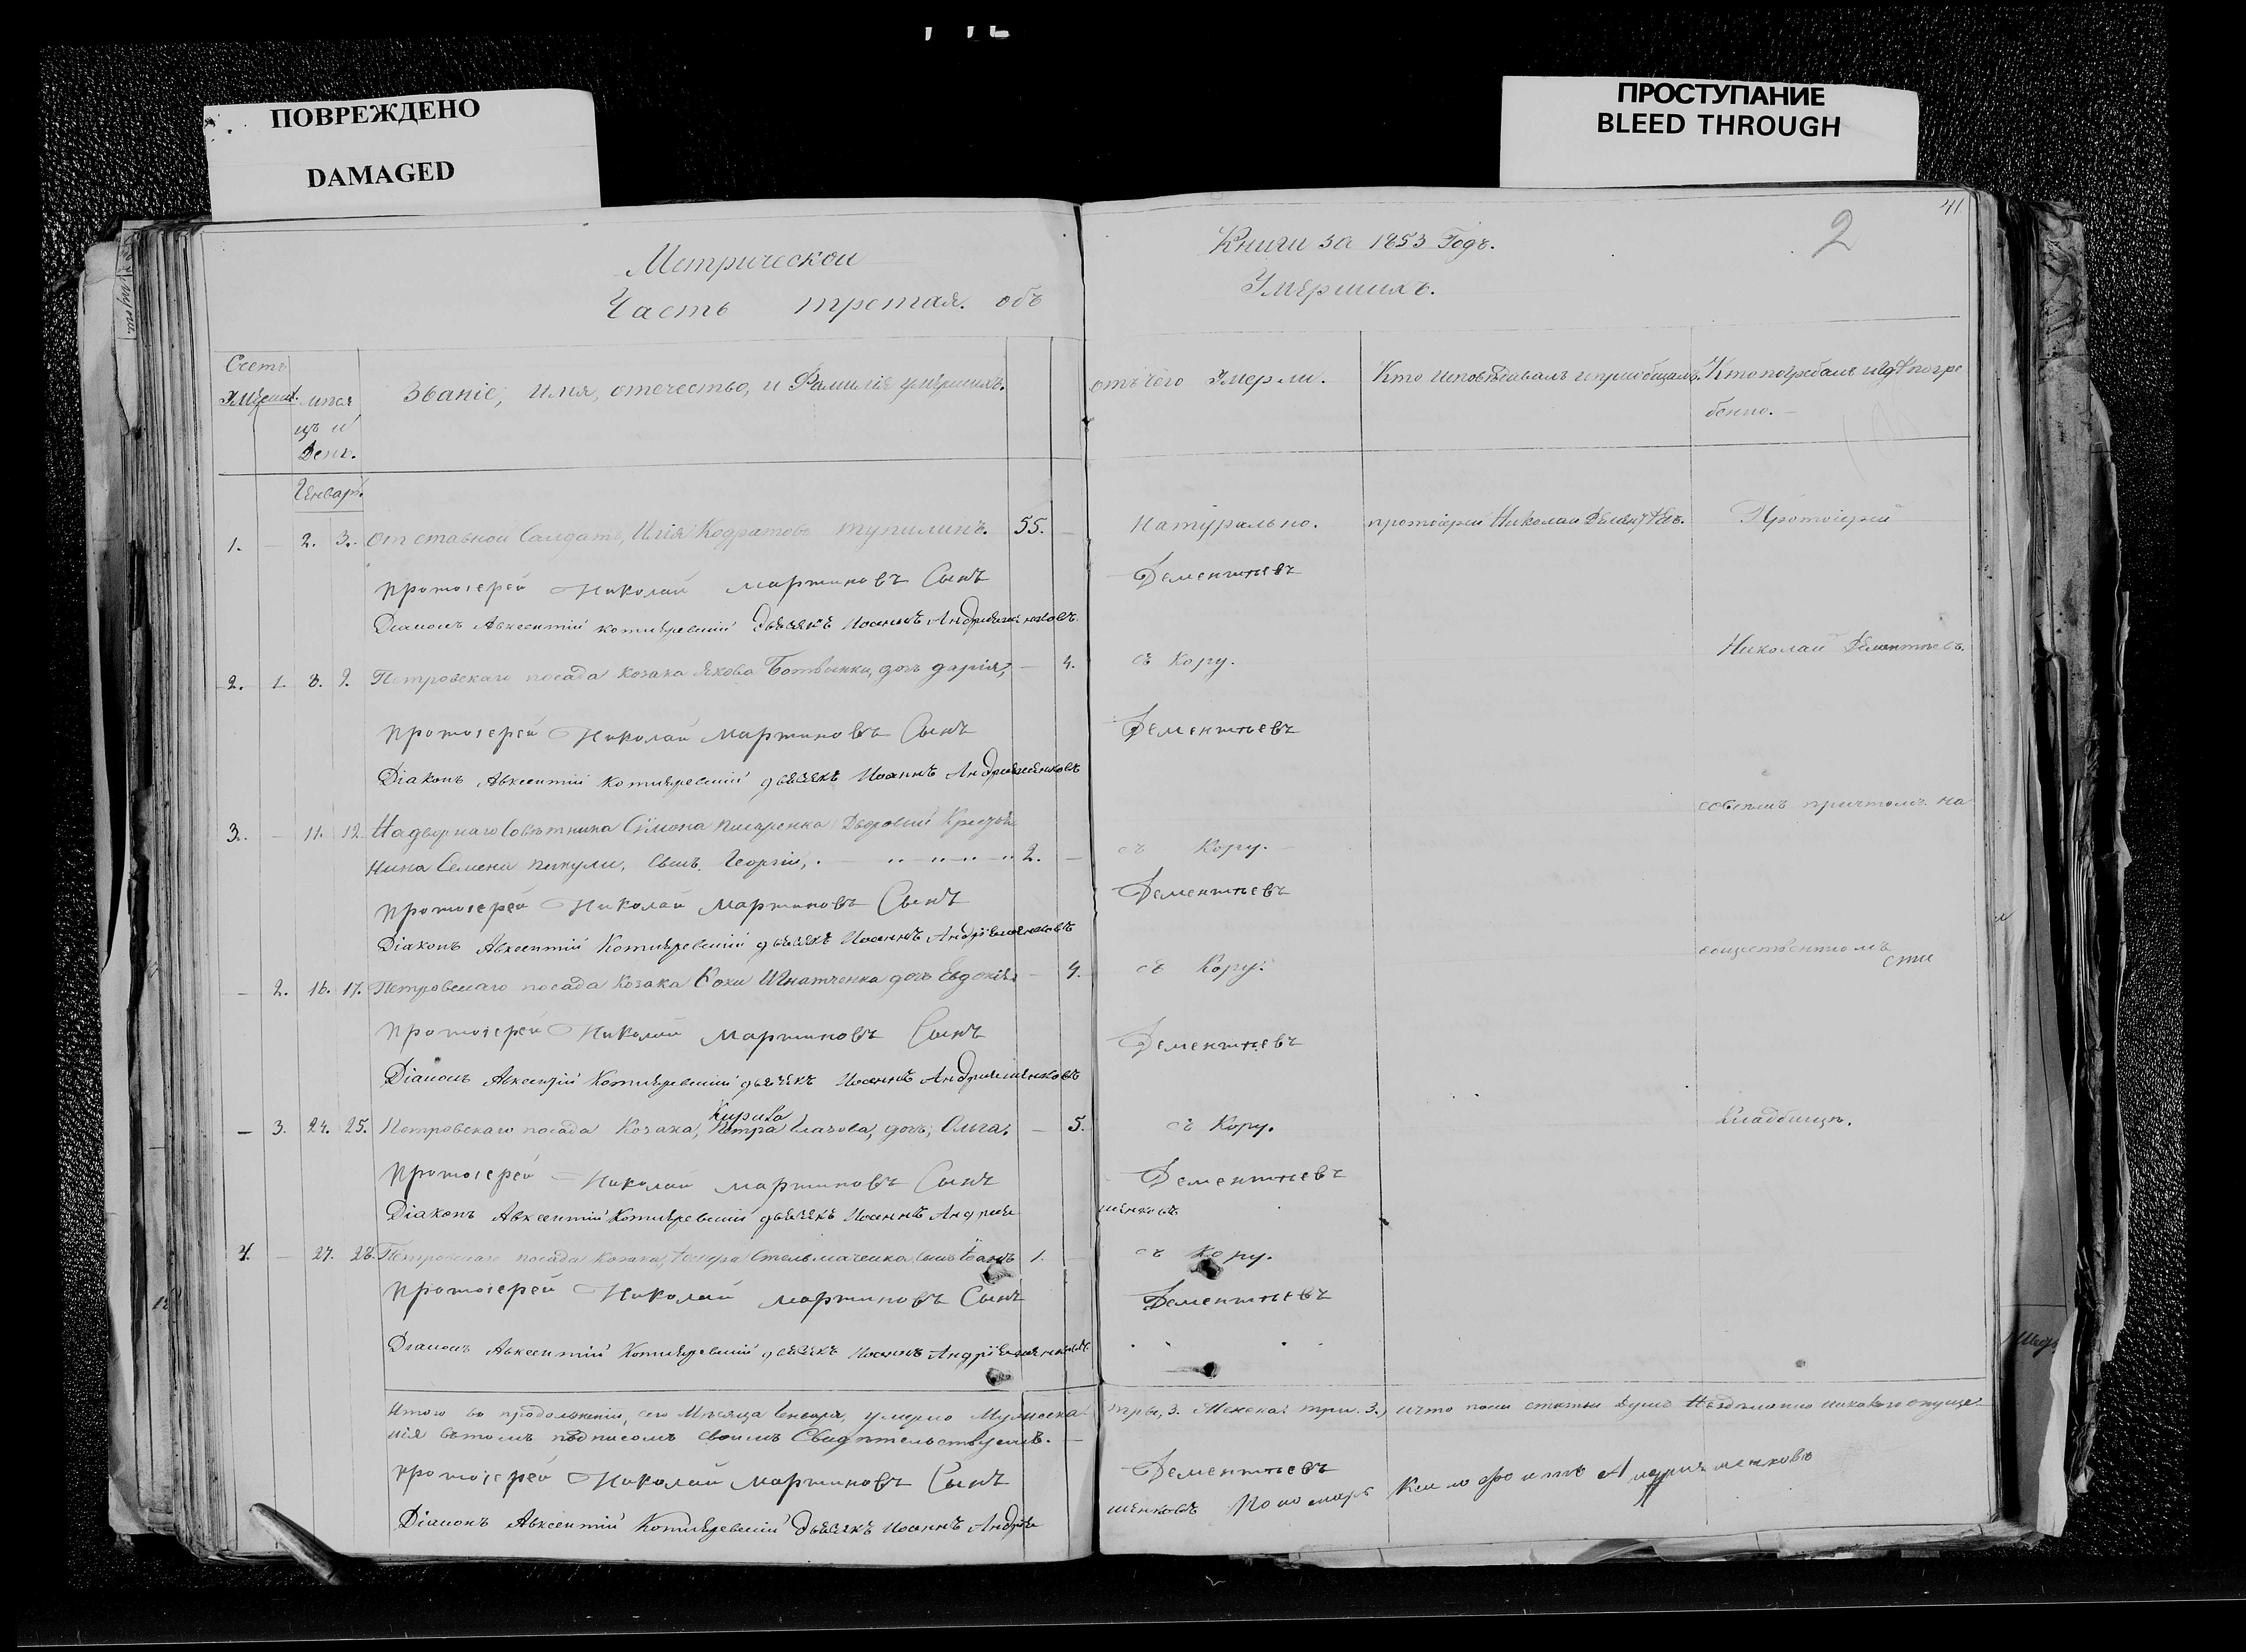 ПОВРЕЖДЕНО
DAMAGED
ПРОСТУПАНИЕ
BLEED THROUGH
41
2
Метрической Книги за 1853 Годъ.
Часть третая. объ Умершихъ.
Счетъ
Умерш.
мѣся
цъ и
День.
Званіе, имя, отечество, и Фамилія умершихъ.
отъ чего Умерли.
Кто исповѣдавалъ и приобщалъ.
Кто погребалъ и гдѣ погре
бенно.
Генварь
1. — 2. 3. Отставной Салдатъ, Илія Кодратовъ тупилинъ. 55. — Натурально. протоіерей Николай Деменτѣевъ. Протоіерей
протоіерей Николай мартиновъ Сынъ Дементьевъ
Діаконъ Авксентій котляревскій дьячекъ Иоаннъ Андріяшенковъ.
Николай Дементьевъ.
2. 1. 8. 9. Петровскаго посада козака Якова Ботвинки, дочь дарія, — 4. съ Кору.
протоіерей Николай мартиновъ Сынъ Дементьевъ
Діаконъ Авксентій котляревскій дьячекъ Иоаннъ Андріяшенковъ
совсѣмъ причтомъ на
3. — 11. 12. Надворнаго Совѣтника Сімона писаренка Дворовий Крестья
нина Семена пикули, Сынъ Георгій, 2. — съ Кору.
протоіерей Николай мартиновъ Сынъ Дементьевъ
Діаконъ Авксентій Котляревскій дьячекъ Иоаннъ Андріяшенковъ
— 2. 16. 17. Петровскаго посада Козака Игнатченка дочь Евдокія — 4. съ Кору.
протоіерей Николай мартиновъ Сынъ Дементьевъ
Діаконъ Авксентій Котляревскій дьячекъ Иоаннъ Андріяшенковъ
Кирила
— 3. 24. 25. Петровскаго посада Козака, Петра дочь, Ольга, — 5. съ Кору. Кладбищѣ.
Протоіерей Николай мартиновъ Сынъ Дементьевъ
Діаконъ Авксентій Котляревскій дьячекъ Иоаннъ Андрія
шенковъ
4. — 27. 28. Петровскаго посада козака, Стельмаченка, сынъ 1. — съ Кору.
протоіерей Николай мартиновъ Сынъ Дементьевъ
Діаконъ Авксентій Котляревскій дьячекъ Иоаннъ Андріяшенковъ
Итого въ продолженіи, сего Мѣсяца Генваря, умерло Мужеска три, 3. Женска три. 3.,
нія вътомъ подписомъ своимъ Свидѣтельствуемъ.
протоіерей Николай мартиновъ Сынъ Дементьевъ
Діаконъ Авксентій Котляревскій дьячекъ Иоаннъ Андрія
шенковъ Пономарь Ксенофонтъ Андріяшенковъ